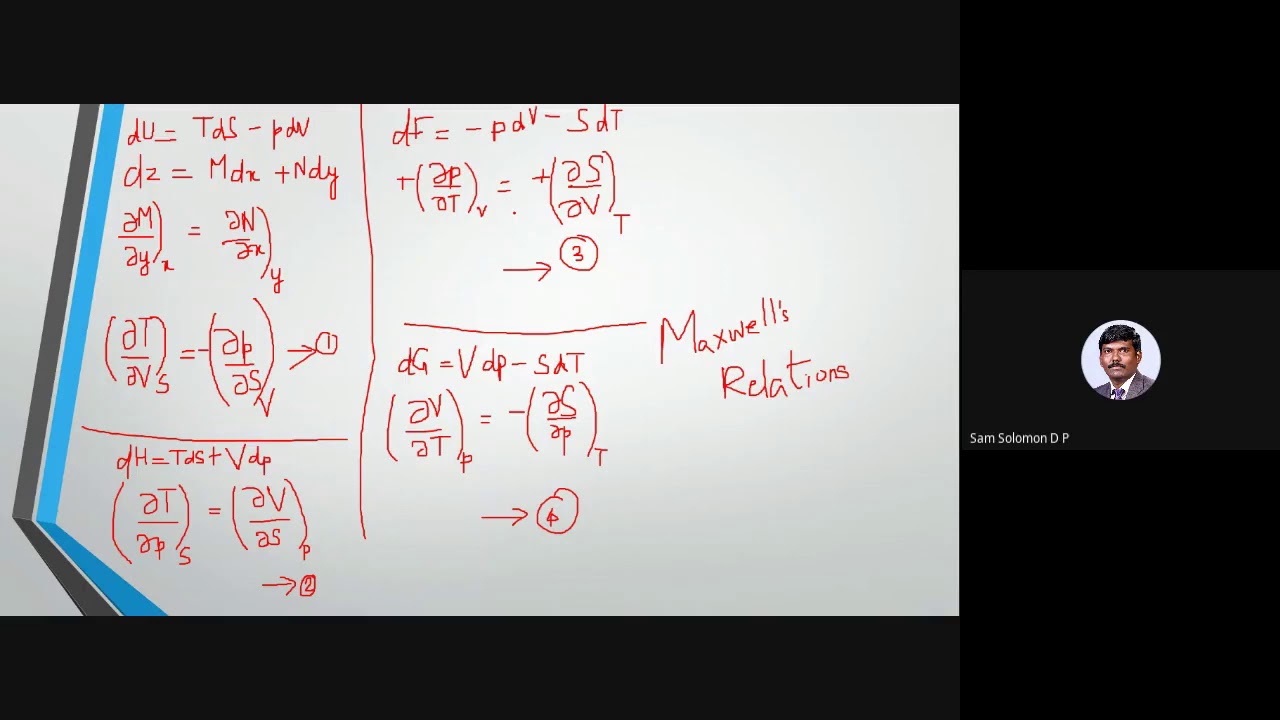 dU = TdS - pdV
dz = Mdx + Ndy
∂M/∂y)x = ∂N/∂x)y
(∂T/∂V)S = -(∂p/∂S)V → ①
dH = TdS + Vdp
(∂T/∂p)S = (∂V/∂S)p
→ ②
dF = -pdV - SdT
+(∂p/∂T)V = +(∂S/∂V)T
→ ③
dG = Vdp - SdT
(∂V/∂T)p = -(∂S/∂p)T
→ ④
Maxwell's
Relations
Sam Solomon D P